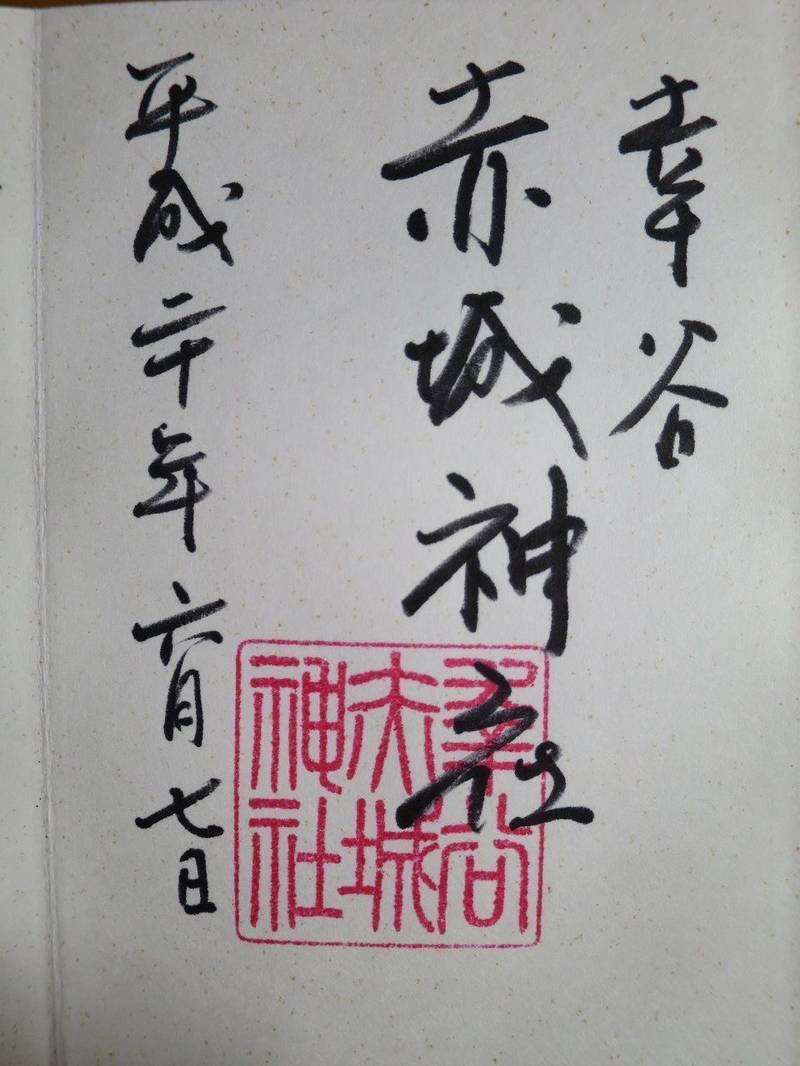 幸谷
赤城神社
平成二十年六月七日
幸谷
赤城
神社